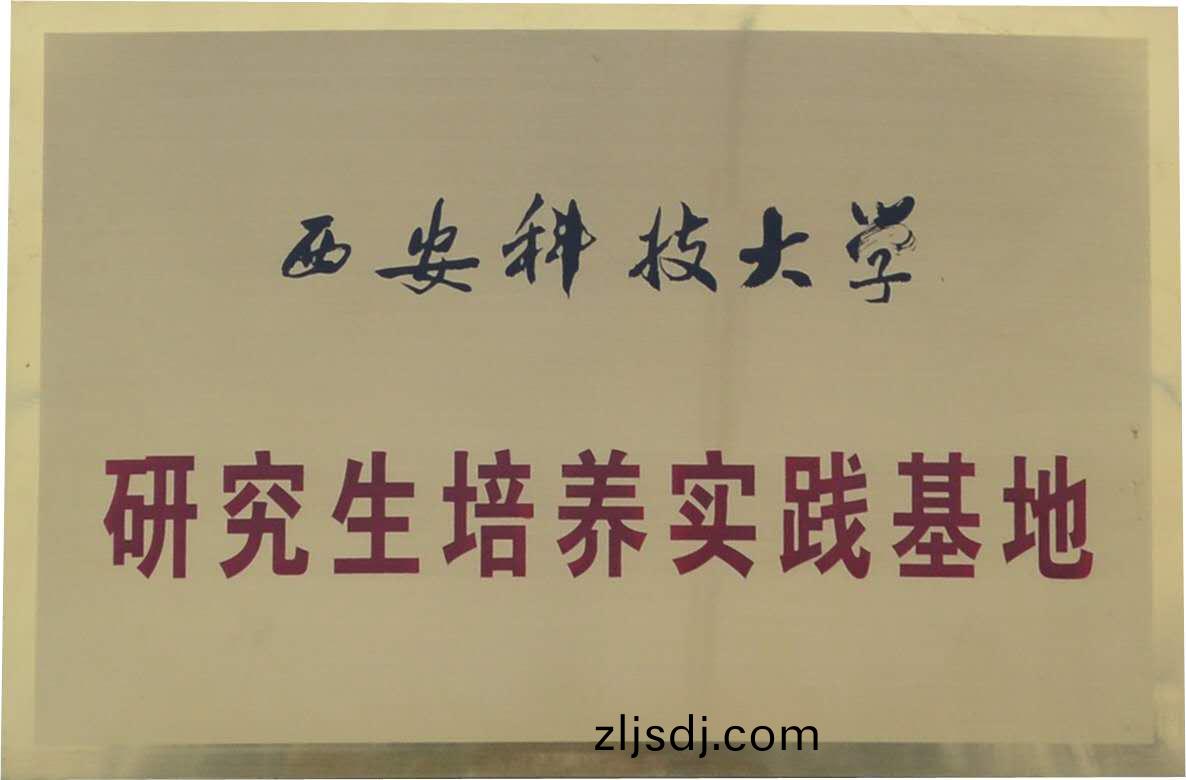 西安科技大学
研究生培养实践基地
zljsdj.com